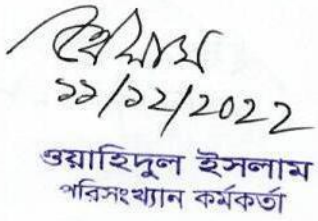 ১১/১২/2022
ওয়াহিদুল ইসলাম
পরিসংখ্যান কর্মকর্তা